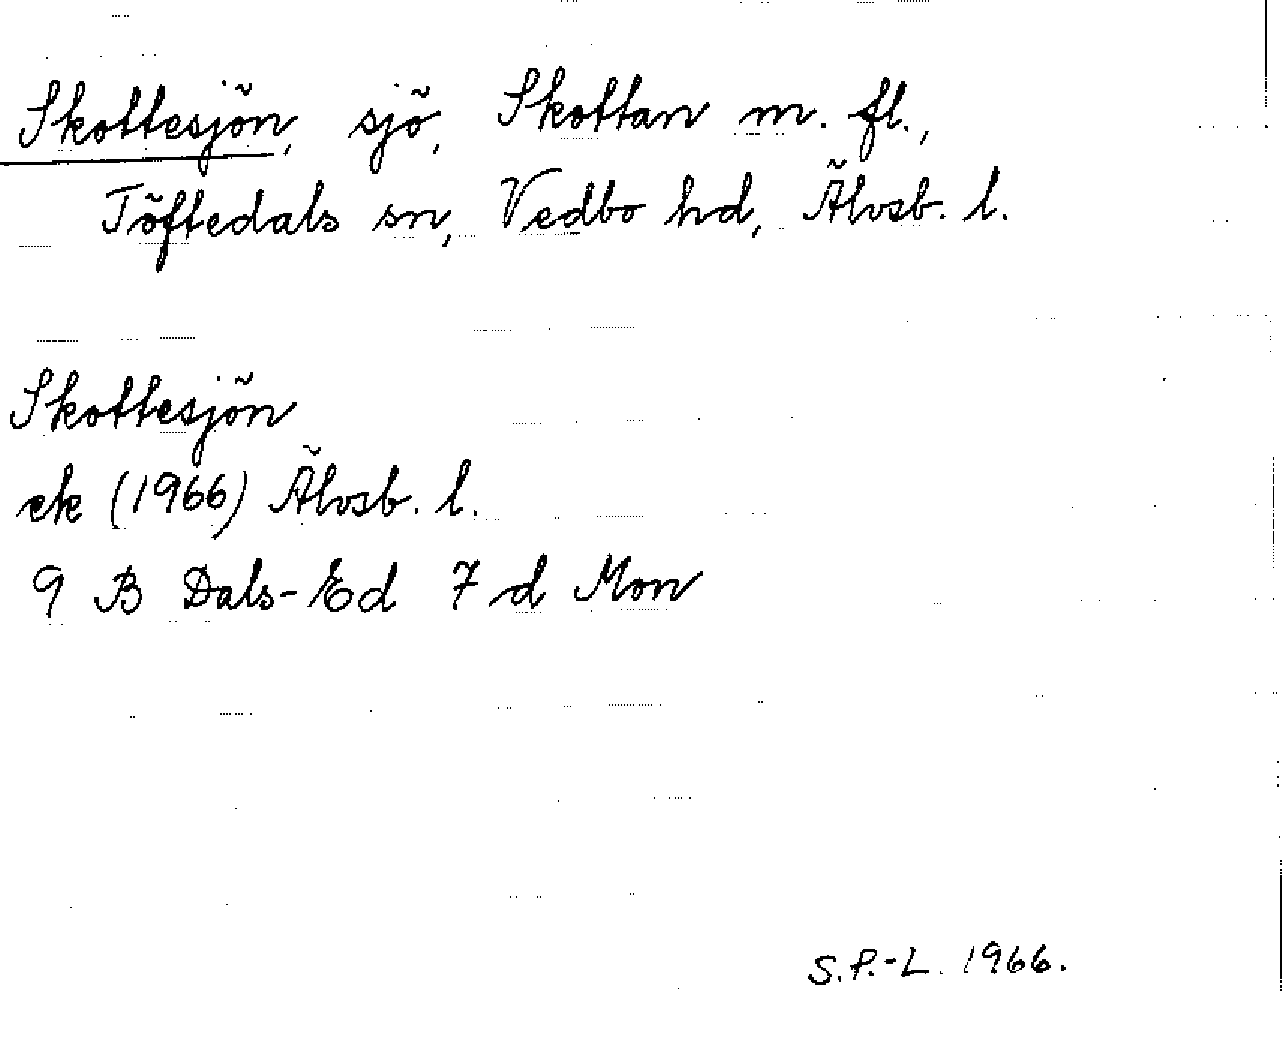 Skottesjön, sjö, Skottan m. fl.,
Töftedals sn, Vedbo hd, Älvsb. l.
Skottesjön
ek (1966) Älvsb. l.
9 B Dals-Ed 7 d Mon
S.P.-L. 1966.